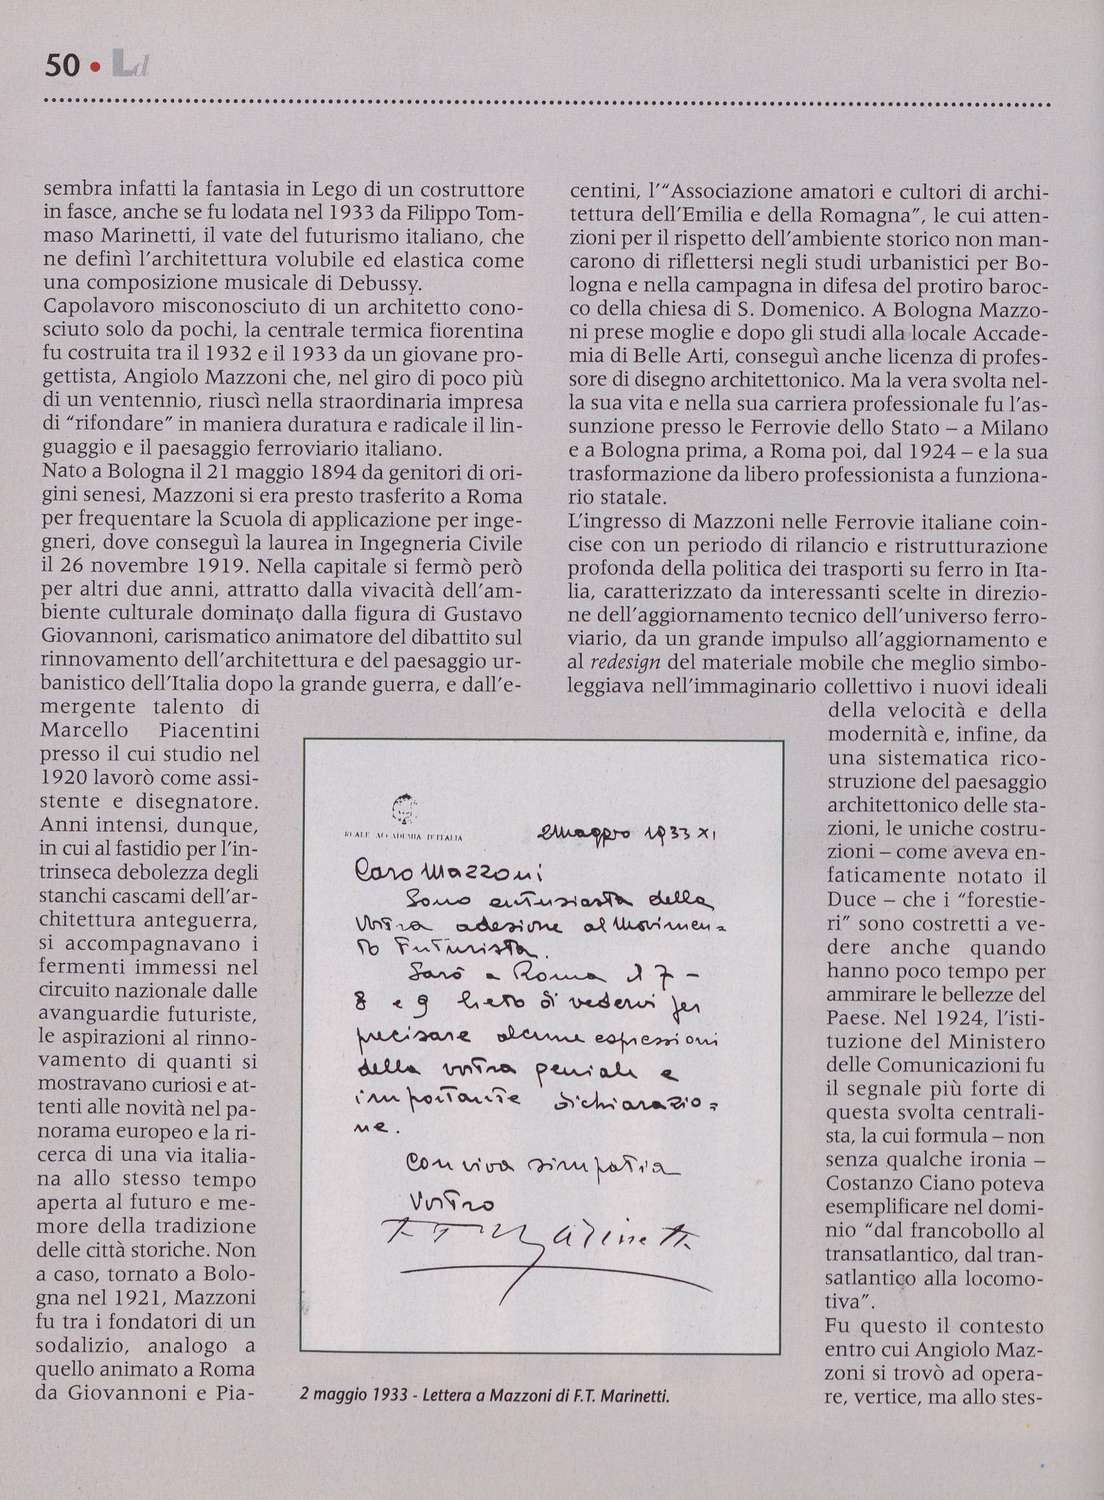 50 • Ld
sembra infatti la fantasia in Lego di un costruttore
in fasce, anche se fu lodata nel 1933 da Filippo Tom-
maso Marinetti, il vate del futurismo italiano, che
ne definì l'architettura volubile ed elastica come
una composizione musicale di Debussy.
Capolavoro misconosciuto di un architetto cono-
sciuto solo da pochi, la centrale termica fiorentina
fu costruita tra il 1932 e il 1933 da un giovane pro-
gettista, Angiolo Mazzoni che, nel giro di poco più
di un ventennio, riuscì nella straordinaria impresa
di “rifondare” in maniera duratura e radicale il lin-
guaggio e il paesaggio ferroviario italiano.
Nato a Bologna il 21 maggio 1894 da genitori di ori-
gini senesi, Mazzoni si era presto trasferito a Roma
per frequentare la Scuola di applicazione per inge-
gneri, dove conseguì la laurea in Ingegneria Civile
il 26 novembre 1919. Nella capitale si fermò però
per altri due anni, attratto dalla vivacità dell'am-
biente culturale dominato dalla figura di Gustavo
Giovannoni, carismatico animatore del dibattito sul
rinnovamento dell'architettura e del paesaggio ur-
banistico dell'Italia dopo la grande guerra, e dall'e-
mergente talento di
Marcello Piacentini
presso il cui studio nel
1920 lavorò come assi-
stente e disegnatore.
Anni intensi, dunque,
in cui al fastidio per l'in-
trinseca debolezza degli
stanchi cascami dell'ar-
chitettura anteguerra,
si accompagnavano i
fermenti immessi nel
circuito nazionale dalle
avanguardie futuriste,
le aspirazioni al rinno-
vamento di quanti si
mostravano curiosi e at-
tenti alle novità nel pa-
norama europeo e la ri-
cerca di una via italia-
na allo stesso tempo
aperta al futuro e me-
more della tradizione
delle città storiche. Non
a caso, tornato a Bolo-
gna nel 1921, Mazzoni
fu tra i fondatori di un
sodalizio, analogo a
quello animato a Roma
da Giovannoni e Pia-
REALE ACCADEMIA D'ITALIA
2 maggio 1933 XI
Caro Mazzoni
Sono entusiasta della
Vostra adesione al Movimen=
to Futurista.
Sarò a Roma il 7 –
8 e 9 lieto di vedervi per
precisare alcune espressioni
della vostra geniale e
importante dichiarazio=
ne.
Con viva simpatia
Vostro
F. T. Marinetti
2 maggio 1933 - Lettera a Mazzoni di F.T. Marinetti.
centini, l'“Associazione amatori e cultori di archi-
tettura dell'Emilia e della Romagna”, le cui atten-
zioni per il rispetto dell'ambiente storico non man-
carono di riflettersi negli studi urbanistici per Bo-
logna e nella campagna in difesa del protiro baroc-
co della chiesa di S. Domenico. A Bologna Mazzo-
ni prese moglie e dopo gli studi alla locale Accade-
mia di Belle Arti, conseguì anche licenza di profes-
sore di disegno architettonico. Ma la vera svolta nel-
la sua vita e nella sua carriera professionale fu l'as-
sunzione presso le Ferrovie dello Stato – a Milano
e a Bologna prima, a Roma poi, dal 1924 – e la sua
trasformazione da libero professionista a funziona-
rio statale.
L'ingresso di Mazzoni nelle Ferrovie italiane coin-
cise con un periodo di rilancio e ristrutturazione
profonda della politica dei trasporti su ferro in Ita-
lia, caratterizzato da interessanti scelte in direzio-
ne dell'aggiornamento tecnico dell'universo ferro-
viario, da un grande impulso all'aggiornamento e
al redesign del materiale mobile che meglio simbo-
leggiava nell'immaginario collettivo i nuovi ideali
della velocità e della
modernità e, infine, da
una sistematica rico-
struzione del paesaggio
architettonico delle sta-
zioni, le uniche costru-
zioni – come aveva en-
faticamente notato il
Duce – che i “forestie-
ri” sono costretti a ve-
dere anche quando
hanno poco tempo per
ammirare le bellezze del
Paese. Nel 1924, l'isti-
tuzione del Ministero
delle Comunicazioni fu
il segnale più forte di
questa svolta centrali-
sta, la cui formula – non
senza qualche ironia –
Costanzo Ciano poteva
esemplificare nel domi-
nio “dal francobollo al
transatlantico, dal tran-
satlantico alla locomo-
tiva”.
Fu questo il contesto
entro cui Angiolo Maz-
zoni si trovò ad opera-
re, vertice, ma allo stes-